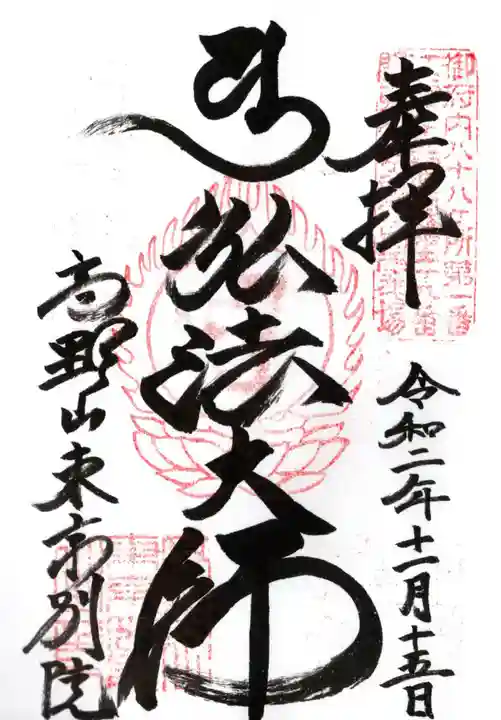 御府内八十八ヶ所第一番
奉拝
令和二年十一月十五日
弘法大師
高野山東京別院